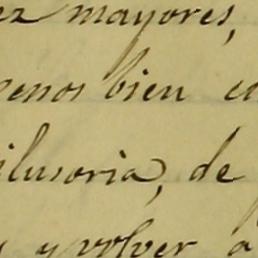 ez mayores,
enos bien
ilusoria, de
y volver a